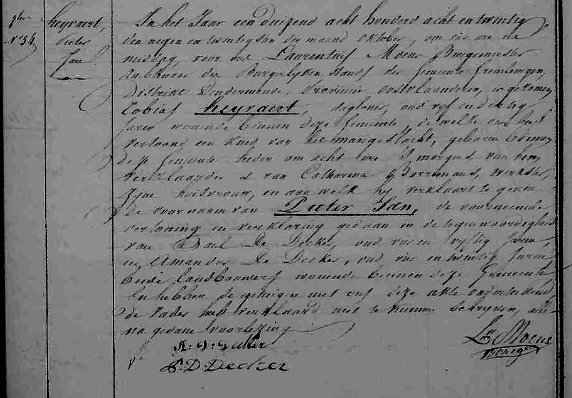 N° 54.
heyvaert,
Pieter
Jan
In het Jaar een duizend acht honderd acht en twintig
den negen en twintigsten der maand oktober, om
middag, voor ons Laurentius Moens Burgemeester
Ambtenaar des Burgerlyken Stands der Gemeente
District Dendermonde, Provincie Oostvlaanderen, is gekomen
Tobias heyvaert, oud vyf en dertig
jaren woonende binnen deze gemeente, de welke ons heeft
vertoond een kind van het mangeslacht, geboren binnen
deze gemeente heden om acht ure 's morgens van hem
verklaarder & van Catharina
zyne huisvrouw, en aan welk hy verklaart te geven
de voornamen van Pieter Jan, de voornoemde
vertooning en verklaring gedaan in de tegenwoordigheid
van Paul De Decker, oud en vyftig jaren,
en Amandus De Decker, oud en twintig jaren
beide landbouwers woonende binnen deze gemeente
En hebben de getuigen met ons deze akte onderteekend
de vader heeft verklaard niet te kunnen schryven, als
na gedane voorlezing
Moens
P. D Decker